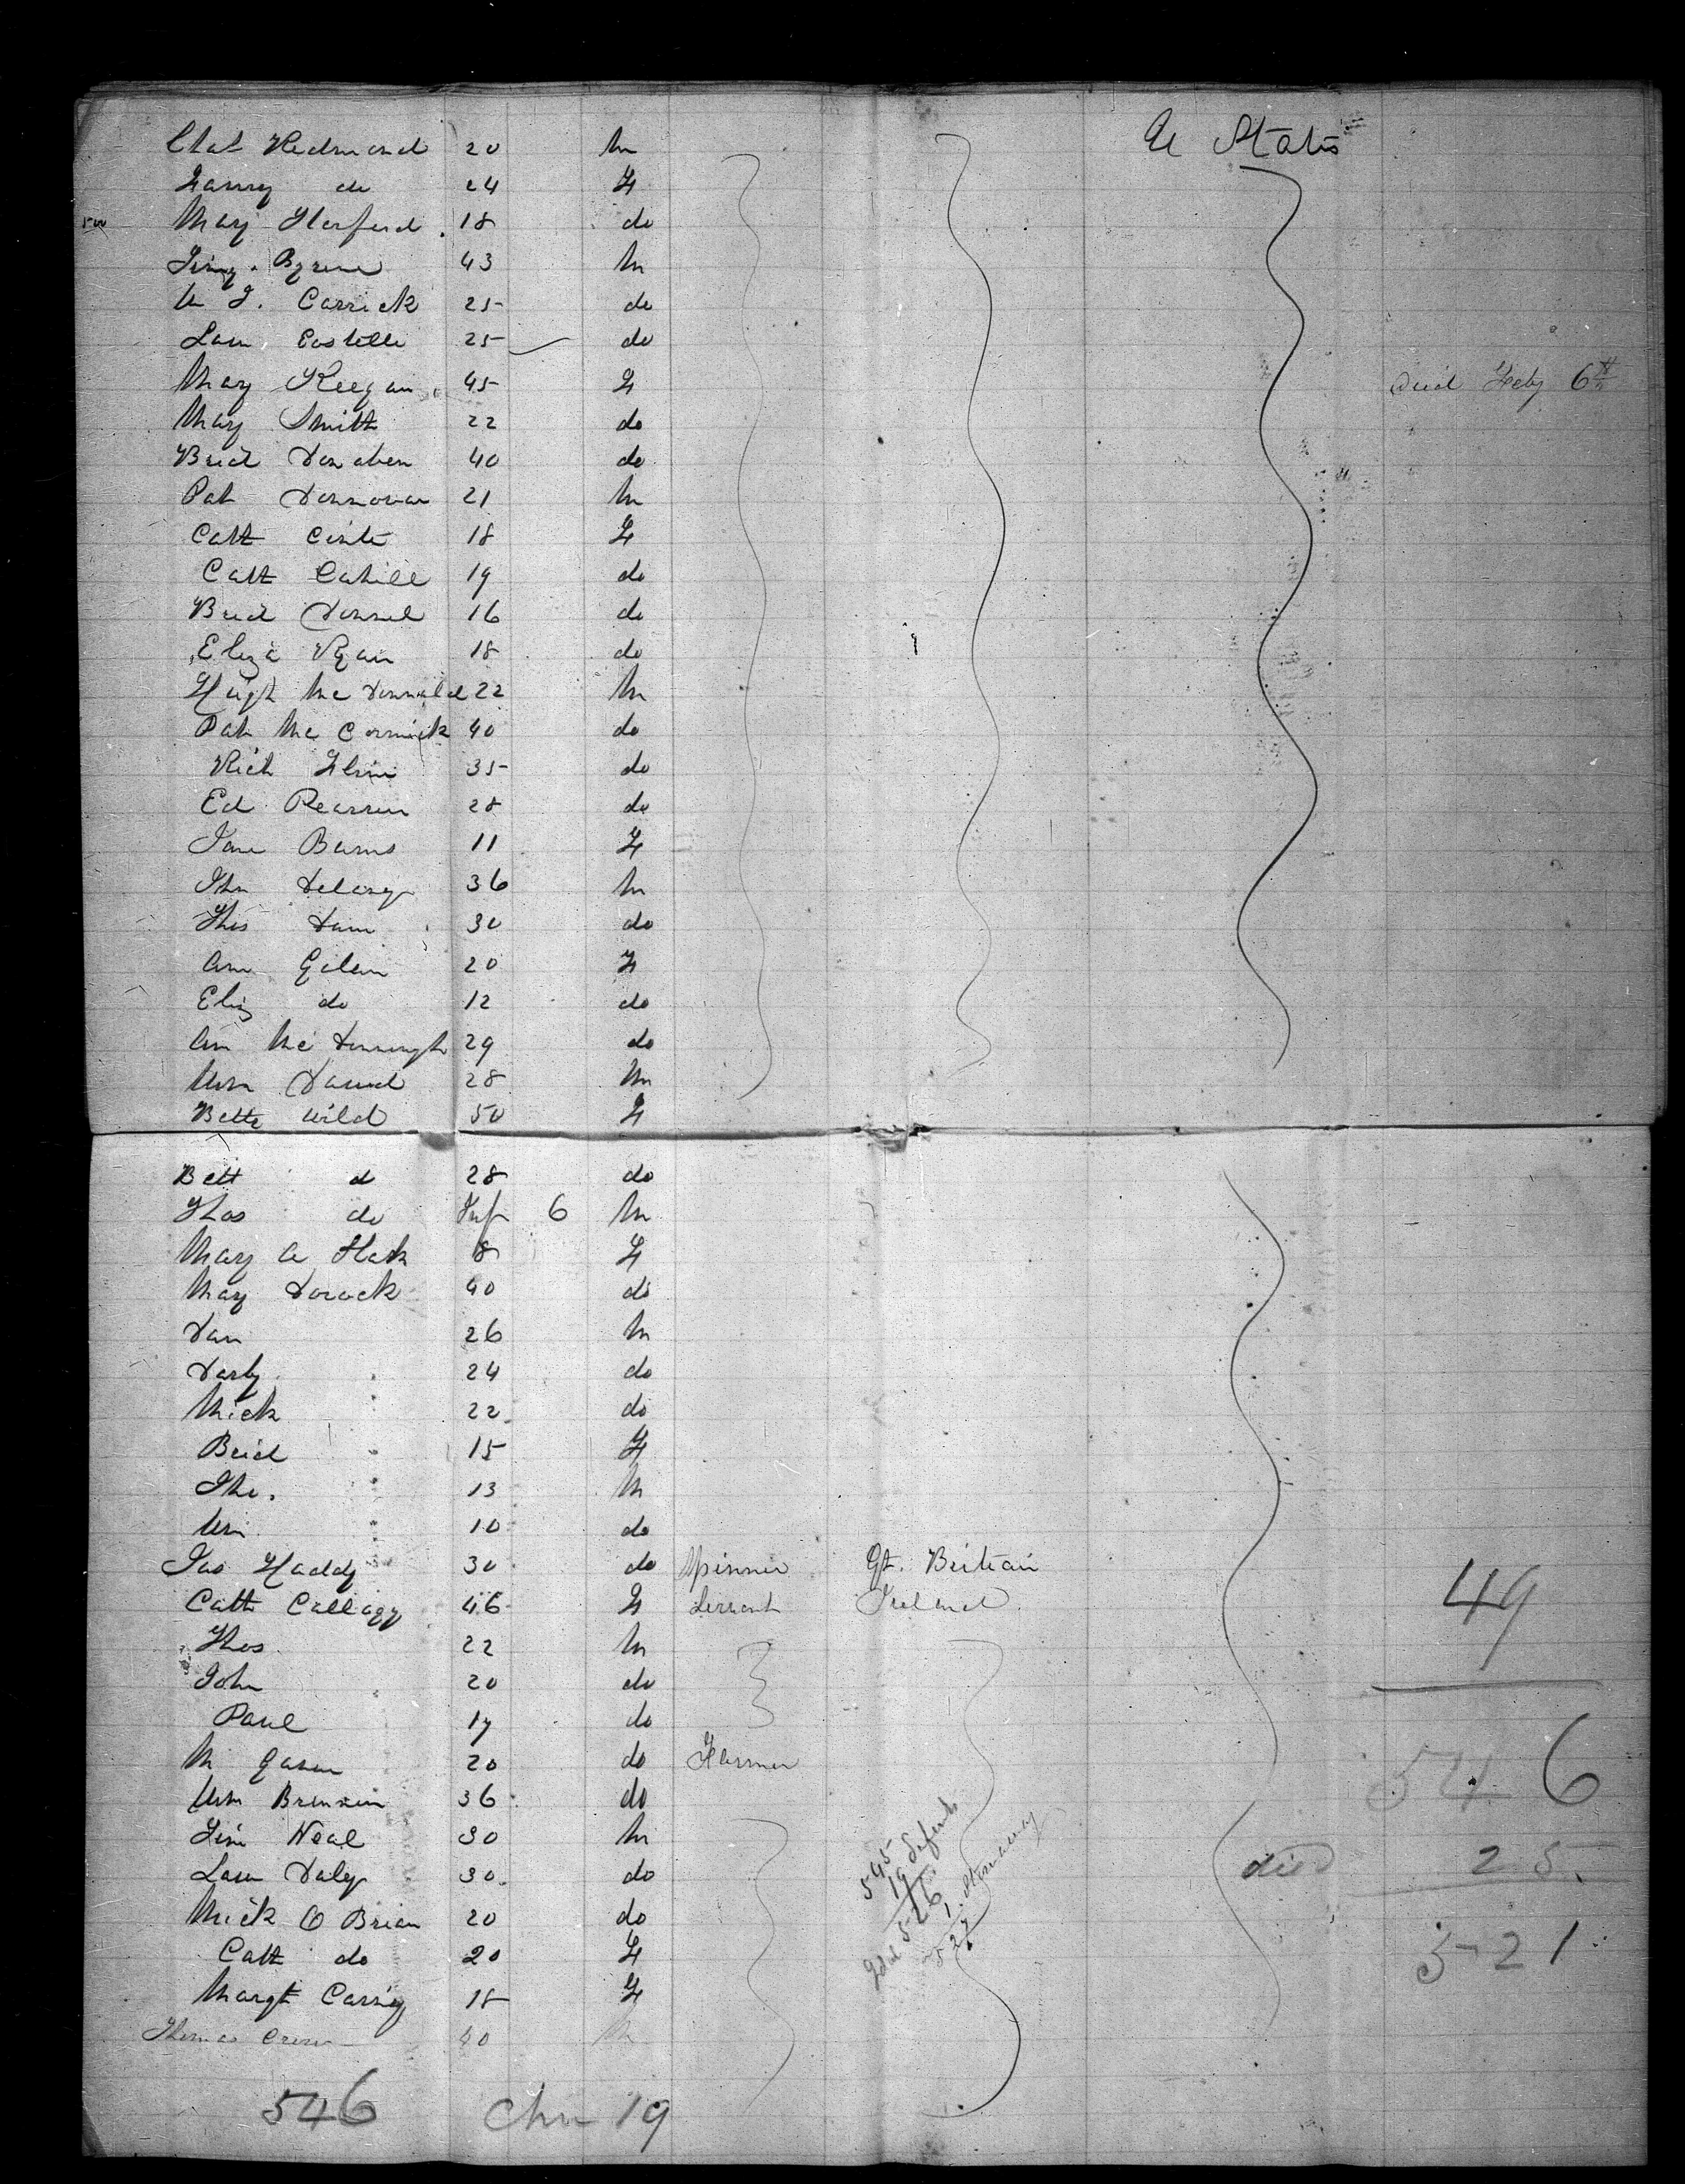 U States
Redmond 20 M
Fanny do 24 F
500 Mary 18 do
Byrne 43 M
Carrick 25 do
Law Costelle 25 do
Mary Keegan 45 F Died Feby 6th
Mary Smith 22 do
Brid Donahen 40 do
Pat Donnovan 21 M
Cath 18 F
Cath Cahill 19 do
Brid Donnel 16 do
Eliza Ryan 18 do
Hugh Mc Donnald 22 M
Pat Mc Cormick 40 do
Rich Flinn 35 do
Ed 28 do
Jane Burns 11 F
Jhn Delany 36 M
Thos 30 do
Ann 20 F
Eliz do 12 do
Ann Mc 29 do
Wm 28 M
Bette Wild 50 F
Bett d 28 do
Thos do Inf 6 M
Mary A 8 F
Mary 40 do
Dan 26 M
Darby 24 do
Mick 22 do
Brid 15 F
Jho. 13 M
Wm 10 do
Jas Haddy 30 do Spinner Gt. Britain
Cath Callagy 46 F Servant Ireland
49
Thos 22 M
John 20 do
Paul 17 do
M 20 do Farmer
546
Wm Brennen 36 do
Jim Neal 30 M
Law Daly 30 do died 25
545
19 Infants
526
1 Stowaway
527
Mick O Brian 20 do
521
Cath do 20 F
Margt 18 F
Thomas 40 M
546 Chn 19